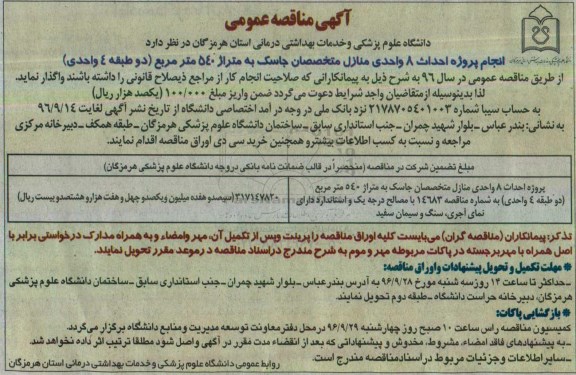 آگهی مناقصه عمومی
دانشگاه علوم پزشکی وخدمات بهداشتی درمانی استان هرمزگان در نظر دارد
انجام پروژه احداث ۸ واحدی منازل متخصصان جاسک به متراژ ۵۴۰ متر مربع (دو طبقه ٤ واحدی)
از طریق مناقصه عمومی در سال ۹۶ به شرح ذیل به پیمانکارانی که صلاحیت انجام کار از مراجع ذیصلاح قانونی را داشته باشند واگذار نماید.
لذا بدینوسیله ازمتقاضیان واجد شرایط دعوت می‌گردد ضمن واریز مبلغ ۱۰۰/۰۰۰ (یکصد هزار ریال)
به حساب سیبا شماره ۲۱۷۸۷۰۵۴۰۱۰۰۲ نزد بانک ملی در وجه در آمد اختصاصی دانشگاه از تاریخ نشر آگهی لغایت ۹۶/۹/۱۴
به نشانی: بندر عباس -بلوار شهید چمران -جنب استانداری سابق -ساختمان دانشگاه علوم پزشکی هرمزگان -طبقه همکف -دبیرخانه مرکزی
مراجعه و نسبت به کسب اطلاعات بیشترو همچنین خرید سی دی اوراق مناقصه اقدام نمایند.
مبلغ تضمین شرکت در مناقصه (منحصراً در قالب ضمانت نامه بانکی دروجه دانشگاه علوم پزشکی هرمزگان)
پروژه احداث ۸ واحدی منازل متخصصان جاسک به متراژ ۵۴۰ متر مربع
(دو طبقه ٤ واحدی) به شماره مناقصه ۱۴۶۸۳ با مصالح درجه یک و استاندارد دارای
نمای آجری، سنگ و سیمان سفید
۳۱۷۱۴۷۸۲۰ (سیصدو هفده میلیون ویکصدو چهل و هفت هزارو هشتصدوبیست ریال)
تذکر: پیمانکاران (مناقصه گران) می‌بایست کلیه اوراق مناقصه را پرینت وپس از تکمیل آن، مهر وامضاء و به همراه مدارک درخواستی برابر با
اصل همراه با مهربرجسته در پاکات مربوطه مهر و موم به شرح مندرج دراسناد مناقصه درموعد مقرر تحویل نمایند.
* مهلت تکمیل و تحویل پیشنهادات واوراق مناقصه:
-حداکثر تا ساعت ۱۴ روزسه شنبه مورخ ۹۶/۹/۲۸ به آدرس بندرعباس -بلوار شهید چمران -جنب استانداری سابق -ساختمان دانشگاه علوم پزشکی
هرمزگان، دبیرخانه حراست دانشگاه -طبقه دوم تحویل نمایند.
* بازگشایی پاکات:
کمیسیون مناقصه راس ساعت ۱۰ صبح روز چهارشنبه ۹۶/۹/۲۹ درمحل دفتر معاونت توسعه مدیریت و منابع دانشگاه برگزار می‌گردد.
-به پیشنهادهای فاقد امضاء، مشروط، مخدوش و پیشنهاداتی که بعد از انقضاء مدت مقرر در آگهی واصل شود مطلقا ترتیب اثر داده نخواهد شد.
-سایر اطلاعات و جزئیات مربوط در اسنادمناقصه مندرج است.
روابط عمومی دانشگاه علوم پزشکی وخدمات بهداشتی درمانی استان هرمزگان